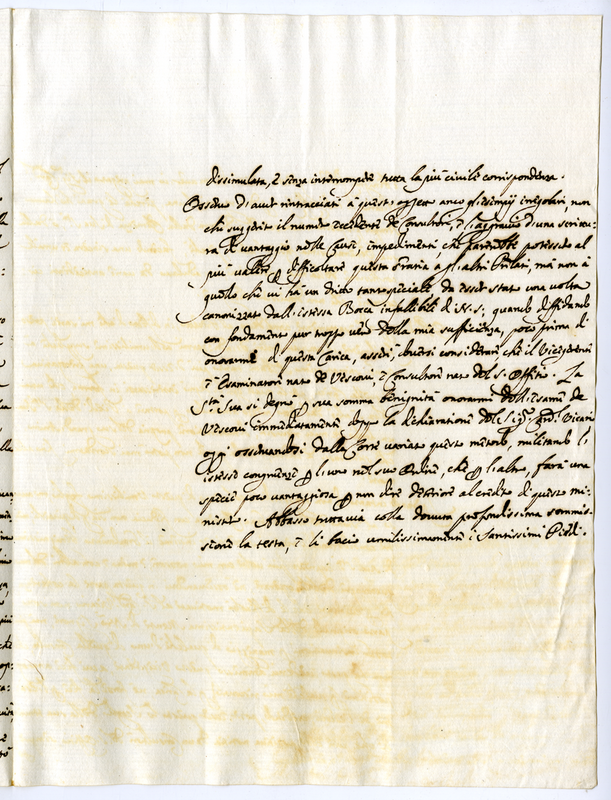 dissimulata, e senza interrompere tutta la più civile corrispondenza.
Osservo d'aver rintracciati à questo oggetto anco gl'esempij irregolari, non
che suggerito il numero eccedente de Consultori, e l'aggravio d'una scrittu-
ra di vantaggio nelle Cause, impedimenti, che potessero al
più valere, e difficoltare questa grazia à gl'altri Prelati, mà non à
quello che vi hà un dritto tanto speciale da esser stato una volta
canonizzato dall'istessa Bocca infallibile di N. S., quando diffidando
con fondamento pur troppo vero della mia sufficienza, poco prima di
onorarmi di questa Carica, asserì diversi considerare, che il Vicegerente
è Esaminatore nato de Vescovi, e Consultore nato del S. Offitio. La
S.tà Sua si degnò p sua somma benignità onorarmi dell'esame de
Vescovi immediatamente doppo la dichiaratione del Sig.r Card. Vicario
oggi osservandosi dalla Corte variato questo metodo, militando le
istesse congruenze p l'uno nel suo Ordine, che p l'altro, farà una
specie poco vantaggiosa p non dire deteriore al credito di questo mi-
nistro. Abbasso tuttavia colla dovuta profondissima sommis-
sione la testa, e li bacio umilissimamente i Santissimi Piedi.